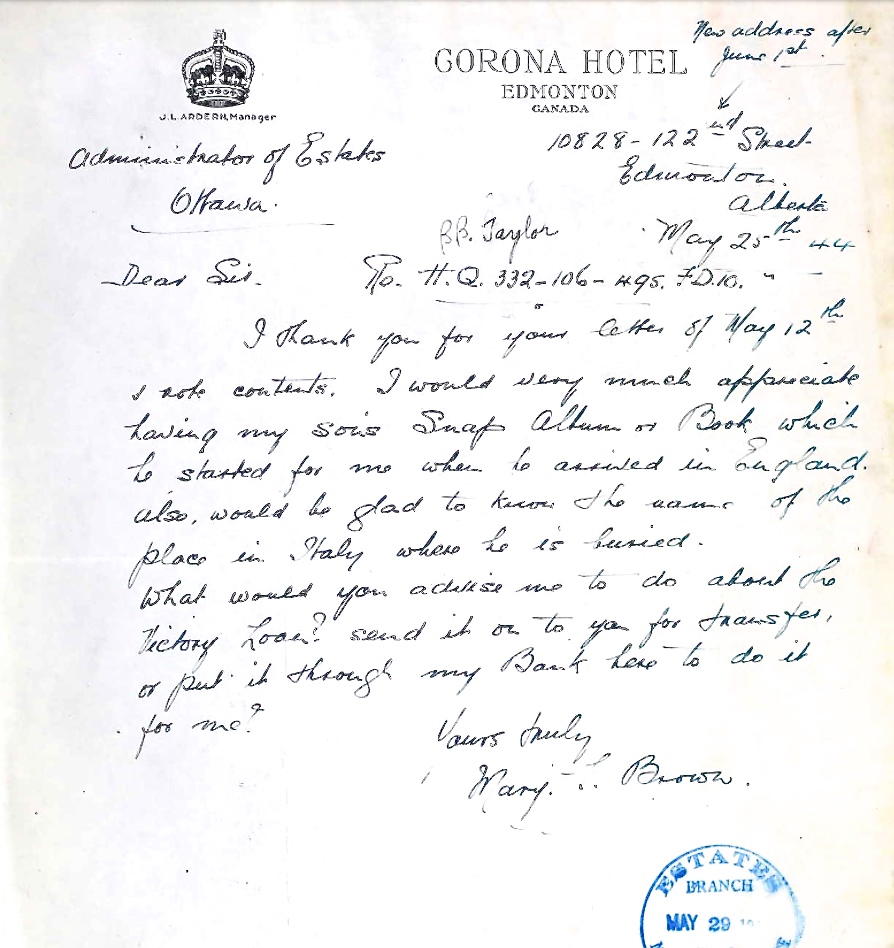 New address after
June 1st.
CORONA HOTEL
EDMONTON
CANADA
J.L. ARDERN, Manager
10828-122nd Street
Edmonton.
Alberta
Administrator of Estates
Ottawa.
Taylor
May 25th 44
Dear Sir.
Re. H.Q. 332-106-495. F.D.10.
I thank you for your letter of May 12th
& note contents. I would very much appreciate
having my son's Snap Album or Book which
he started for me when he arrived in England.
Also, would be glad to know the name of the
place in Italy where he is buried.
What would you advise me to do about the
Victory Loan? send it on to you for transfer,
or put it through my Bank here to do it
for me?
Yours truly
Mary. L. Brown.
ESTATES
BRANCH
MAY 29